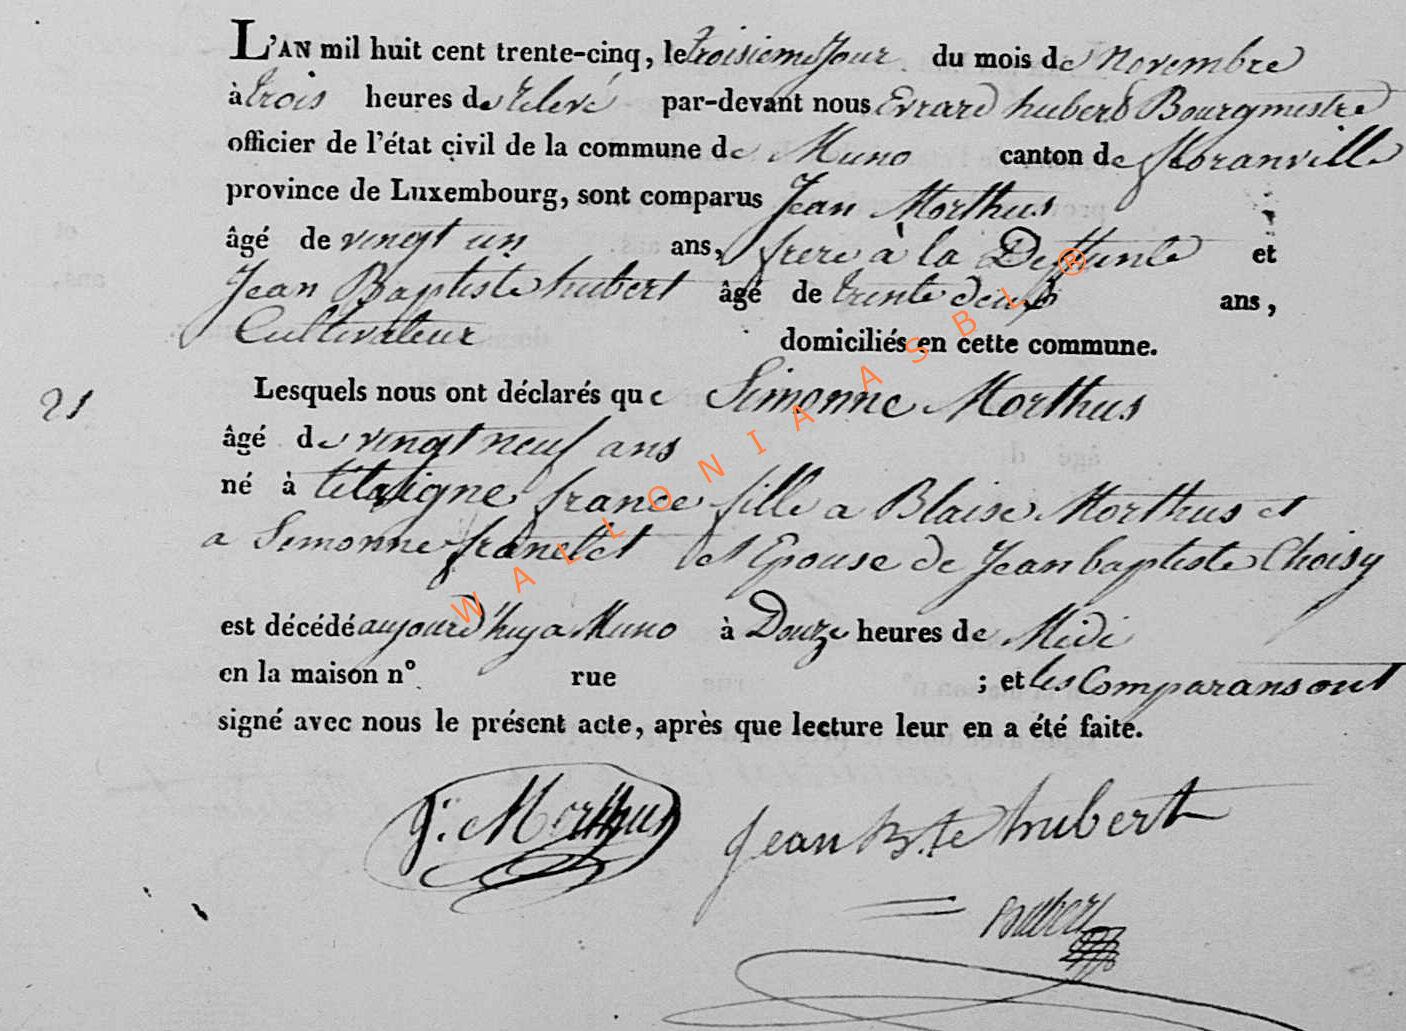 L'AN mil huit cent trente-cinq, le troisieme Jour du mois de novembre
à trois heures de relevé par-devant nous Evrard hubert Bourgmestre
officier de l'état civil de la commune de Muno canton de floranville
province de Luxembourg, sont comparus Jean Morthus
âgé de vingt un ans, frere à la Deffunte et
Jean Baptiste hubert âgé de trente deux ans,
Cultivateur domiciliés en cette commune.
21 Lesquels nous ont déclarés que Simonne Morthus
âgé de vingt neuf ans
né à tétaigne france fille a Blaise Morthus et
a Simonne francTet et Epouse de Jean baptiste Choisy
est décédé aujourd'huy a Muno à Douze heures de Midi
en la maison n° rue ; et les Comparans ont
signé avec nous le présent acte, après que lecture leur en a été faite.
J: Morthus Jean B.te hubert
hubert
WALLONIA ASBL ®